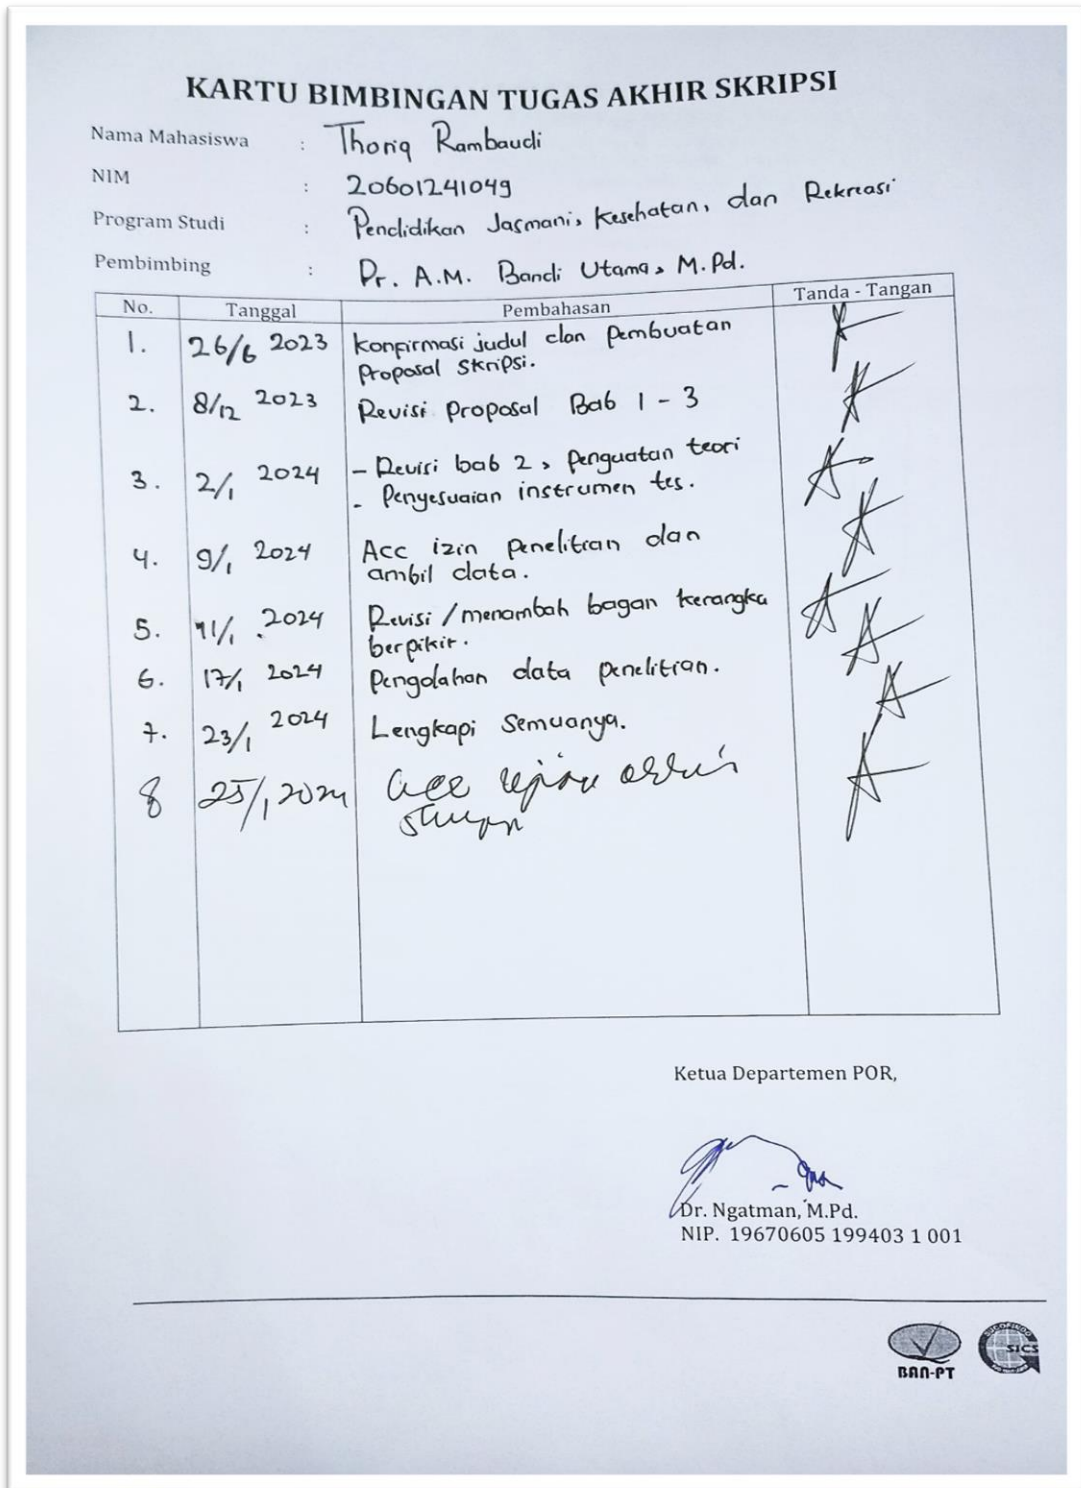 KARTU BIMBINGAN TUGAS AKHIR SKRIPSI
Nama Mahasiswa : Thoriq Rambaudi
NIM : 20601241049
Program Studi : Pendidikan Jasmani, Kesehatan, dan Rekreasi
Pembimbing : Dr. A.M. Bandi Utama, M.Pd.
No. Tanggal Pembahasan Tanda - Tangan
1. 26/6 2023 Konfirmasi judul dan Pembuatan
Proposal Skripsi.
2. 8/12 2023 Revisi Proposal Bab 1 - 3
3. 2/1 2024 - Revisi bab 2, penguatan teori
- Penyesuaian instrumen tes.
4. 9/1 2024 Acc izin Penelitian dan
ambil data.
5. 11/1 2024 Revisi / menambah bagan kerangka
berpikir.
6. 17/1 2024 Pengolahan data penelitian.
7. 23/1 2024 Lengkapi Semuanya.
8 25/1 2024 acc
Ketua Departemen POR,
Dr. Ngatman, M.Pd.
NIP. 19670605 199403 1 001
BAN-PT
SUCOFINDO
SICS